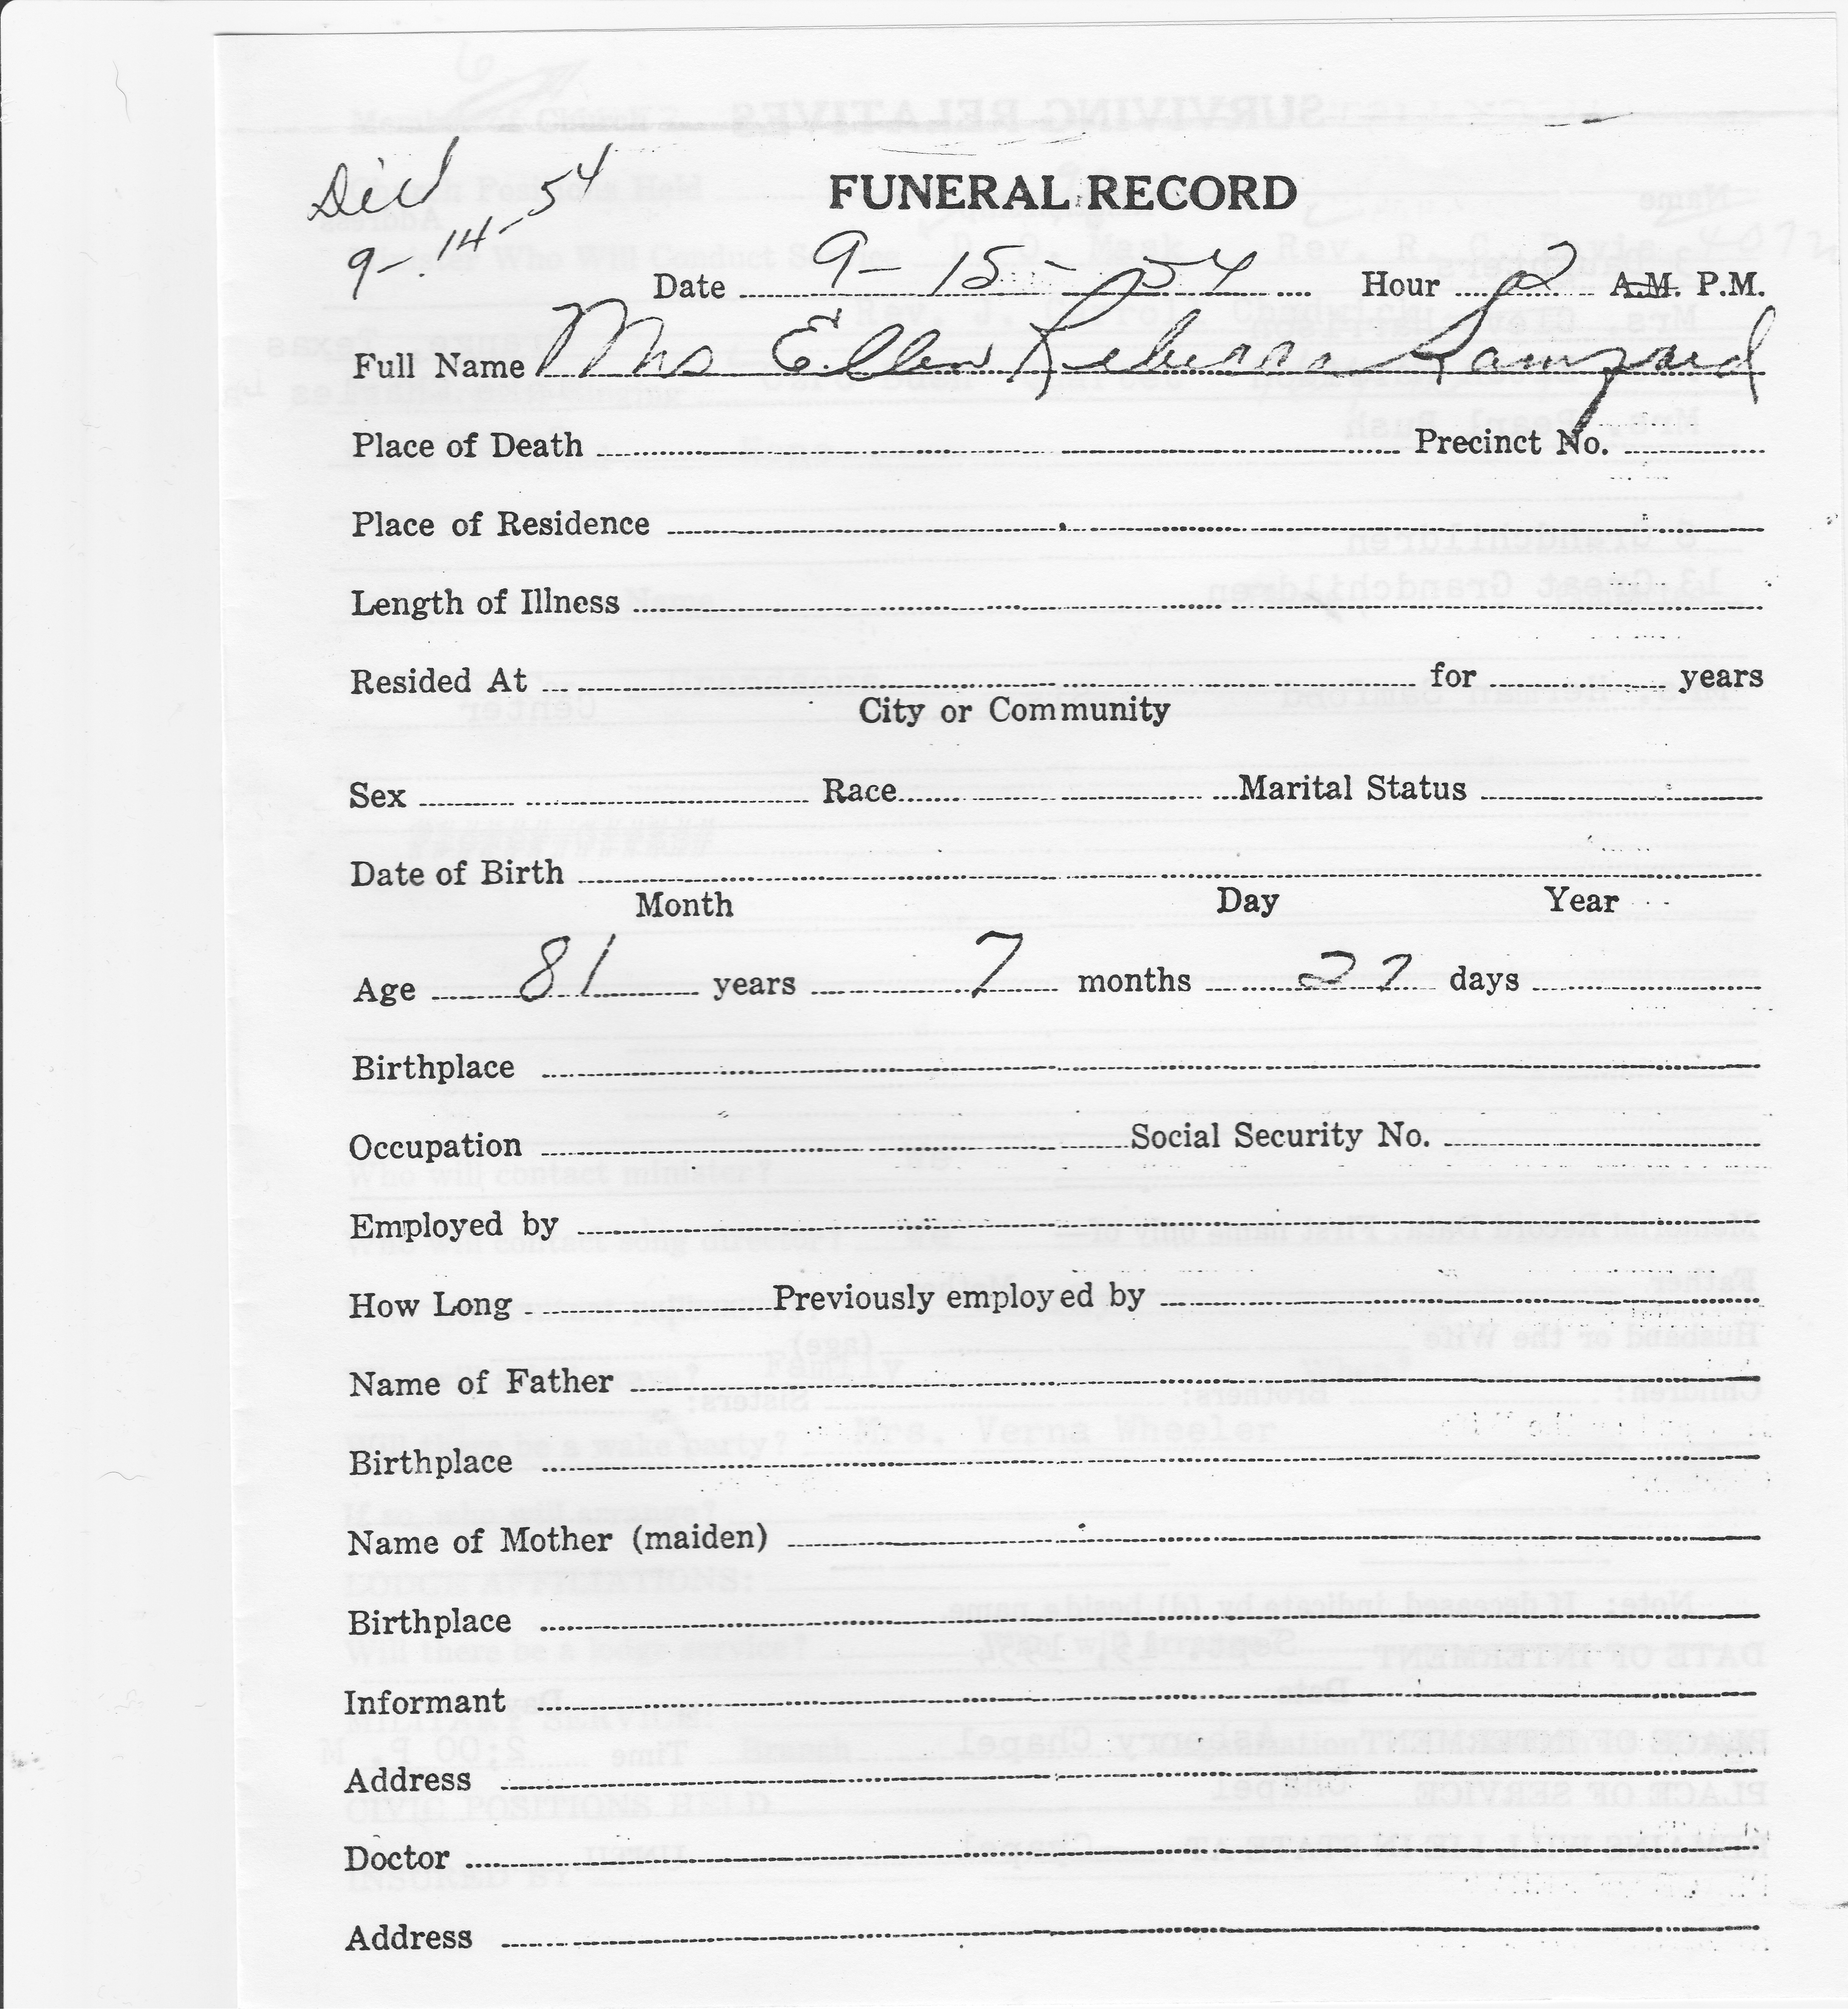 Died
9-14-54
FUNERAL RECORD
Date 9-15-54 Hour 2 A.M. P.M.
Full Name Mrs Ellen Rebecca
Place of Death Precinct No.
Place of Residence
Length of Illness
Resided At for years
City or Community
Sex Race Marital Status
Date of Birth
Month Day Year
Age 81 years 7 months 27 days
Birthplace
Occupation Social Security No.
Employed by
How Long Previously employed by
Name of Father
Birthplace
Name of Mother (maiden)
Birthplace
Informant
Address
Doctor
Address